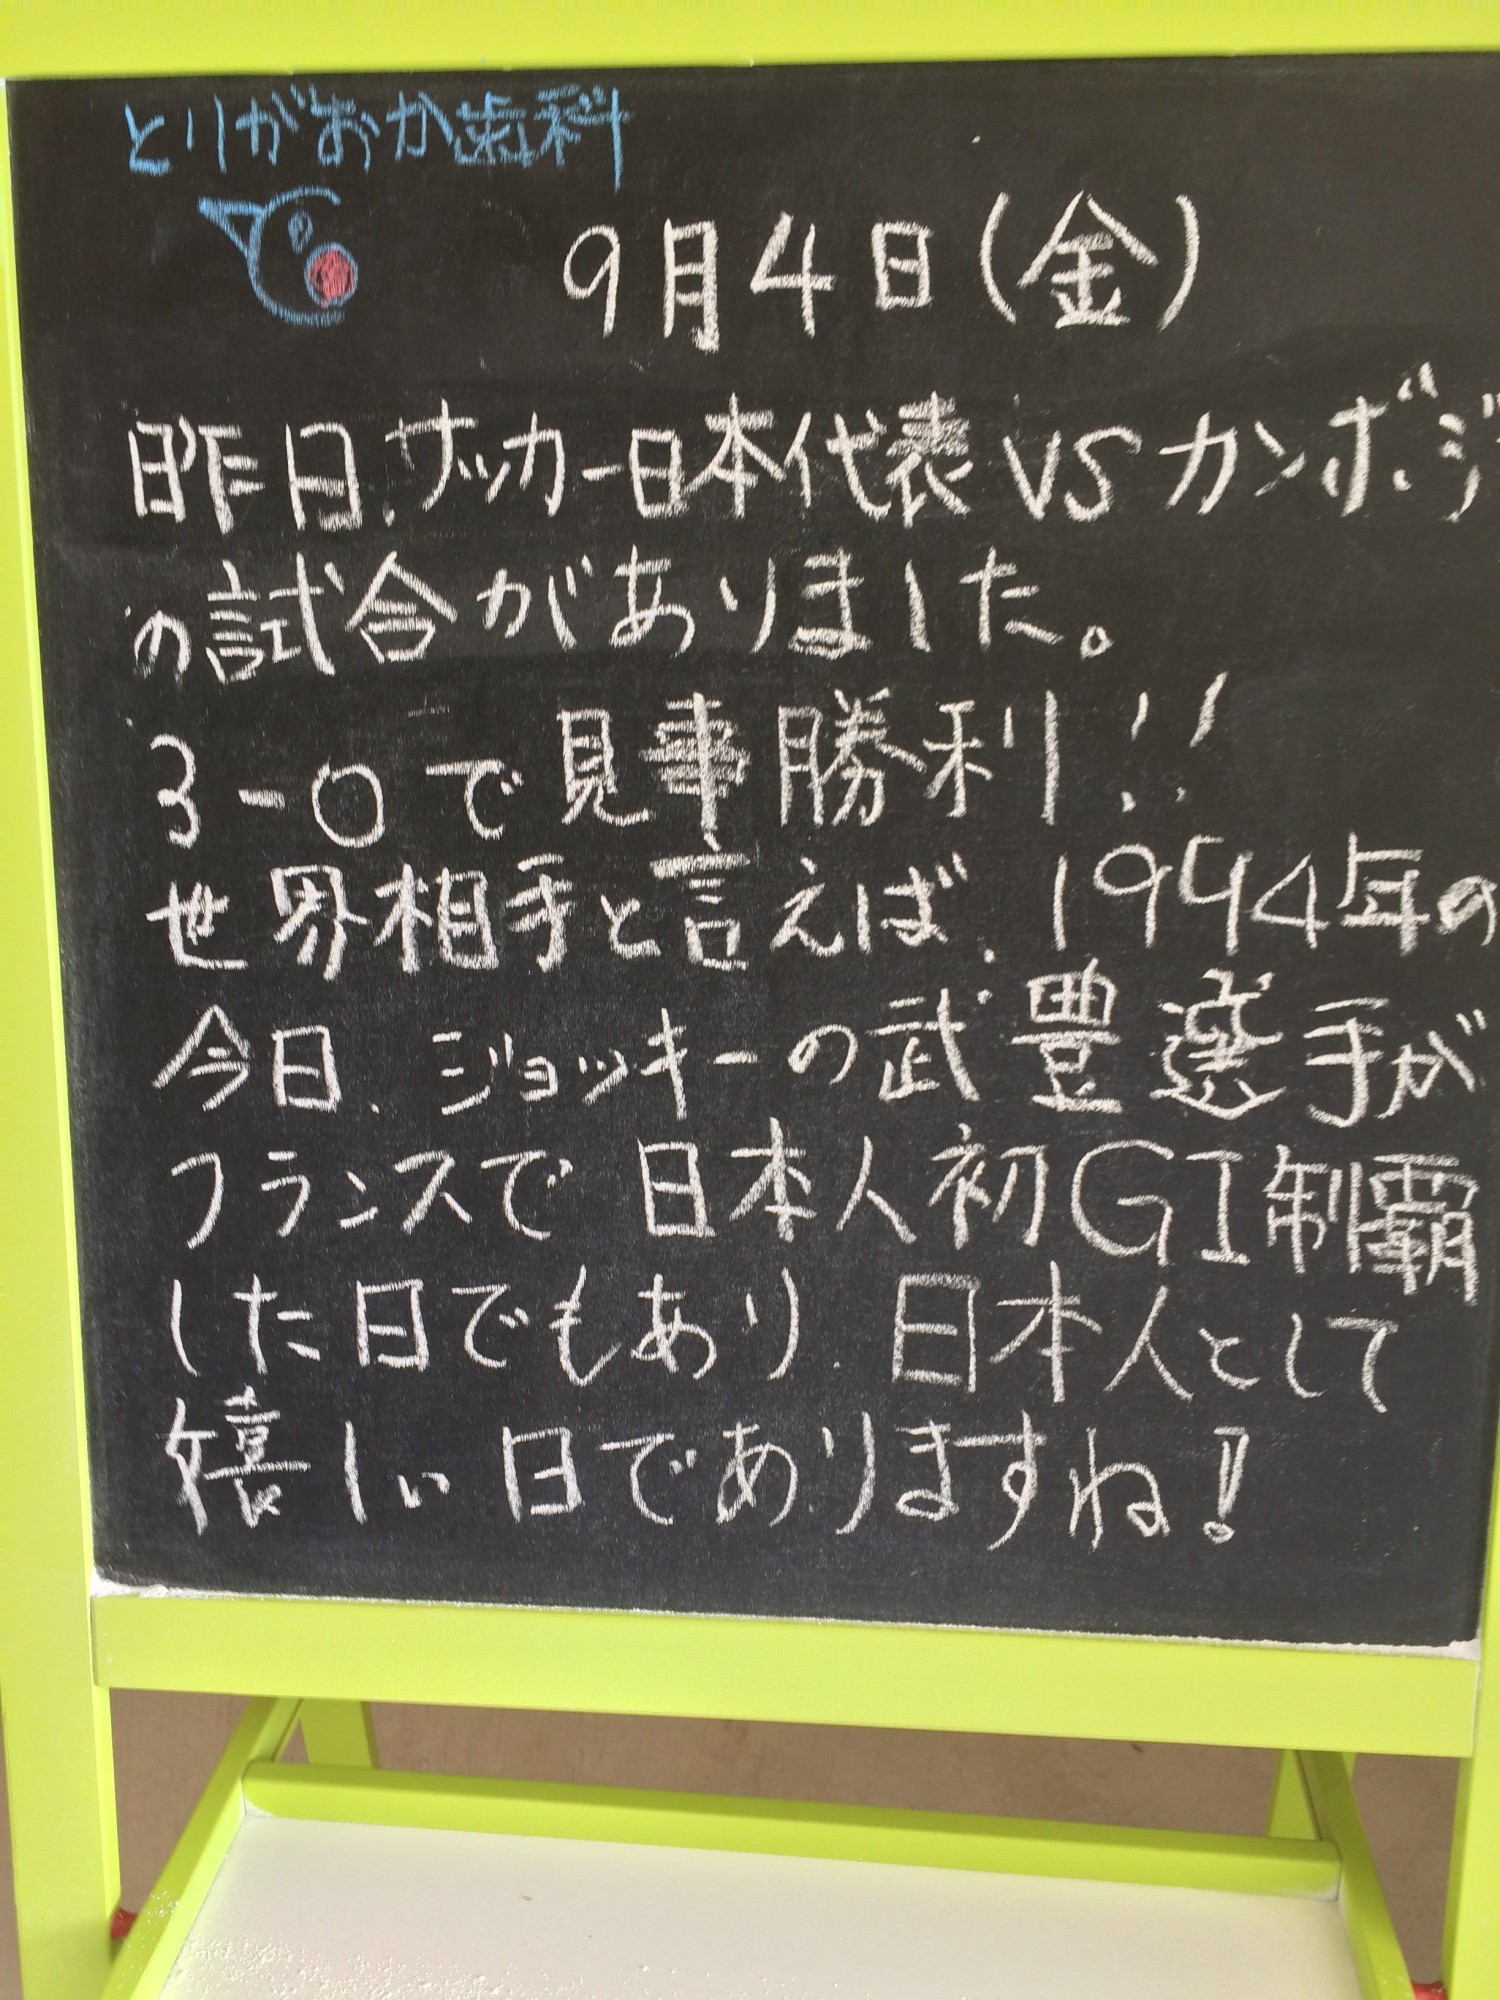 とりがおか歯科
9月4日(金)
昨日、サッカー日本代表VSカンボジ
の試合がありました。
3-0で見事勝利!!
世界相手と言えば、1994年の
今日、ジョッキーの武豊選手が
フランスで日本人初GI制覇
した日でもあり、日本人として
嬉しい日でありますね!